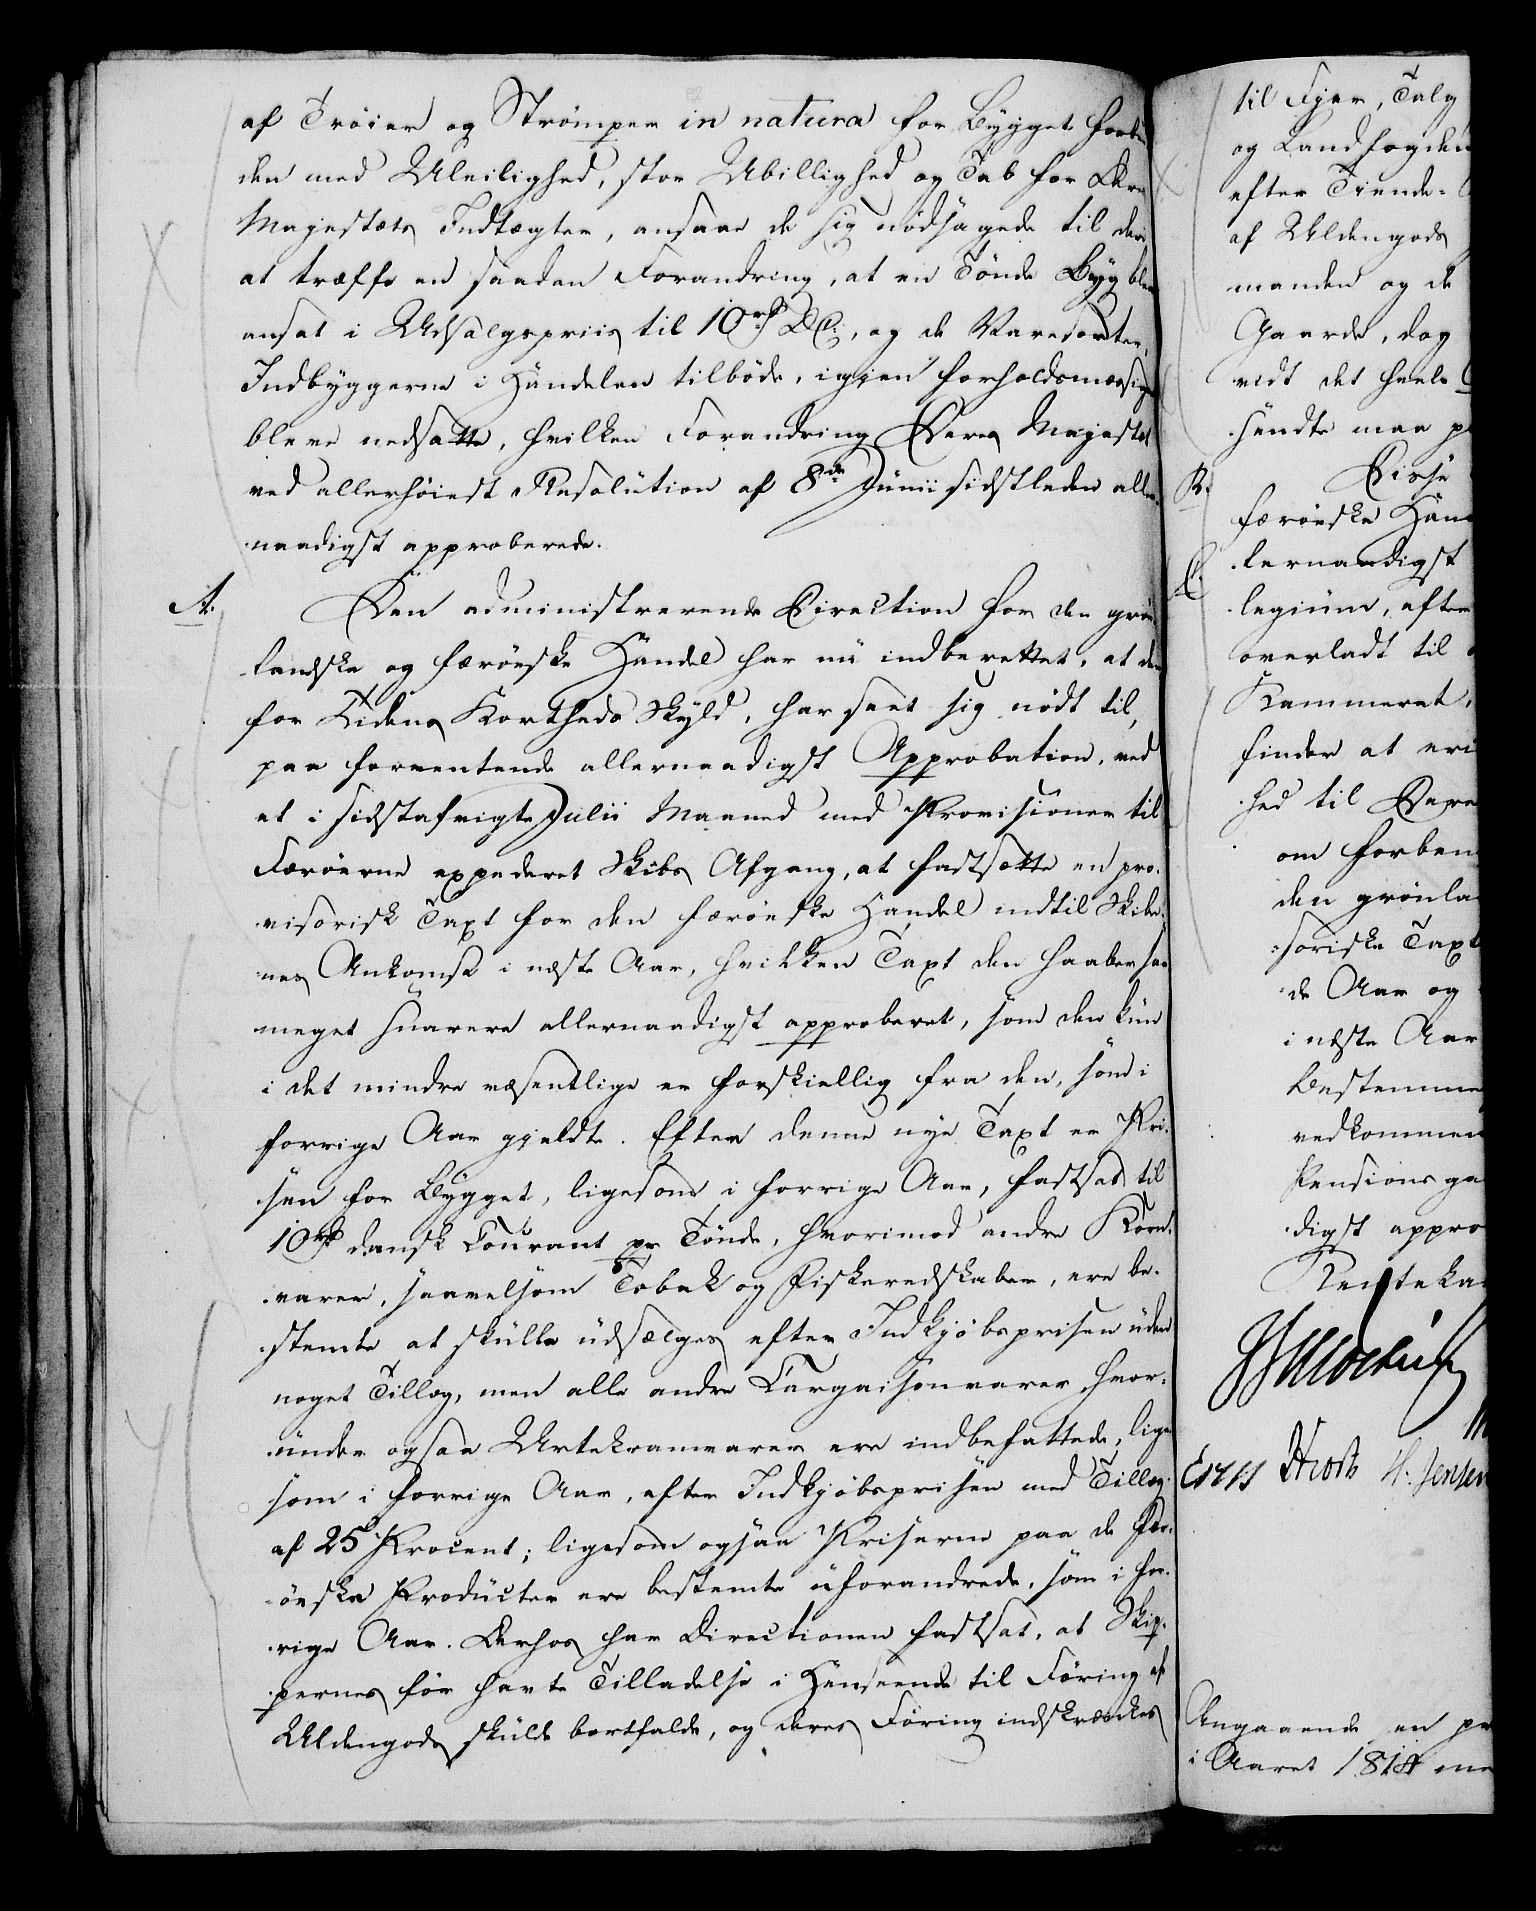 af Trøier og Strømper in natura for Bygget forbun
den med Uleilighed, stor Ubillighed og Tab for Deres
Majestæts Indtægter, ansaae de sig nødsagede til deri
at træffe en saadan Forandring, at en Tønde Byg blev
ansat i Udsalgspriis til 10 rd DC., og de Varesorter,
Indbyggerne i Handelen tilbøde, igjen forholdsmæssig
bleve nedsatte, hvilken Forandring Deres Majestæt
ved allerhøiest Resolution af 8de Junii sidstleden aller-
naadigst approberede.
A. Den administrerende Direction for den grøn
landske og færøeske Handel har nu indberettet, at den
for Tidens Kortheds Skyld, har seet sig nødt til,
paa forventende allernaadigst Approbation, ved
et i sidstafvigte Julii Maaned med Provisioner til
Færøerne expederet Skibs Afgang, at fastsætte en pro-
visorisk Taxt for den færøeske Handel indtil Skibe-
nes Ankomst i næste Aar, hvilken Taxt den haaber saa
meget snarere allernaadigst approberet, som den kun
i det mindre væsentlige er forskiellig fra den, som i
forrige Aar gjeldte. Efter denne nye Taxt er Pri-
sen for Bygget, ligesom i forrige Aar, fastsat til
10 rd dansk Courant pr Tønde, hvorimod andre Korn-
varer, saavelsom Tobak og Fiskeredskaber, ere be-
stemte at skulle udsælges efter Indkjøbsprisen uden
noget Tillæg, men alle andre Cargaisonvarer hvor-
under ogsaa Urtekramvarer ere indbefattede, lige
som i forrige Aar, efter Indkjøbsprisen med Tillæg
af 25 Procent; ligesom ogsaa Priserne paa de fær-
øeske Producter ere bestemte uforandrede, som i for-
rige Aar. Derhos har Directionen fastsat, at Skip-
pernes før havte Tilladelse i Henseende til Føring af
Uldengods skulde bortfalde, og deres Føring indskrænkes
til Fjer, Talg
og Landfogden
efter Tiende-
af Uldengods
manden og de
Gaarde, dog
vidt det heele
sendte maa
R. Disse
færøeske Han
C. lernaadigst
legium, efter
overladt til
Kammeret,
finder at eri
hed til Deres
om forben
den grønla
soriske Taxt
de Aar og
i næste Aar
Bestemme
vedkommen
Pensions ga
digst appro
Renteka
H. Jensen
Angaaende en pr
i Aaret 1814 me